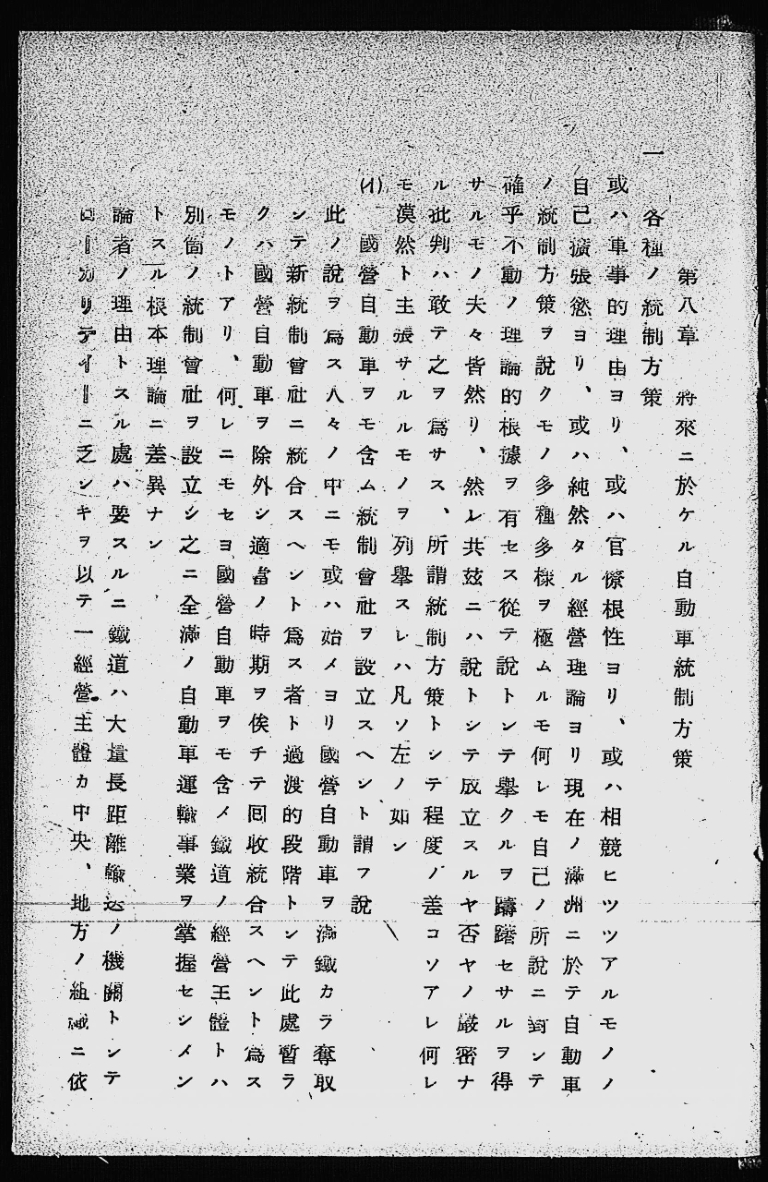 第八章 將來ニ於ケル自動車統制方策
一 各種ノ統制方策
或ハ軍事的理由ヨリ、或ハ官僚根性ヨリ、或ハ相競ヒツツアルモノノ
自己擴張慾ヨリ、或ハ純然タル經營理論ヨリ現在ノ滿洲ニ於テ自動車
ノ統制方策ヲ説クモノ多種多樣ヲ極ムルモ何レモ自己ノ所説ニ對シテ
確乎不動ノ理論的根據ヲ有セス從テ説トシテ擧クルヲ躊躇セサルヲ得
サルモノ夫々皆然リ、然レ共玆ニハ説トシテ成立スルヤ否ヤノ嚴密ナ
ル批判ハ敢テ之ヲ爲サス、所謂統制方策トシテ程度ノ差コソアレ何レ
モ漠然ト主張サルルモノヲ列擧スレハ凡ソ左ノ如シ
(イ) 國營自動車ヲモ含ム統制會社ヲ設立スヘシト謂フ説
此ノ説ヲ爲ス人々ノ中ニモ或ハ始メヨリ國營自動車ヲ滿鐵カラ奪取
シテ新統制會社ニ統合スヘシト爲ス者ト過渡的段階トシテ此處暫ラ
クハ國營自動車ヲ除外シ適當ノ時期ヲ俟チテ回收統合スヘシト爲ス
モノトアリ、何レニモセヨ國營自動車ヲモ含メ鐵道ノ經營主體トハ
別箇ノ統制會社ヲ設立シ之ニ全滿ノ自動車運輸事業ヲ掌握セシメン
トスル根本理論ニ差異ナシ
論者ノ理由トスル處ハ要スルニ鐵道ハ大量長距離輸送ノ機關トシテ
ローカリテイーニ乏シキヲ以テ一經營主體カ中央、地方ノ組織ニ依